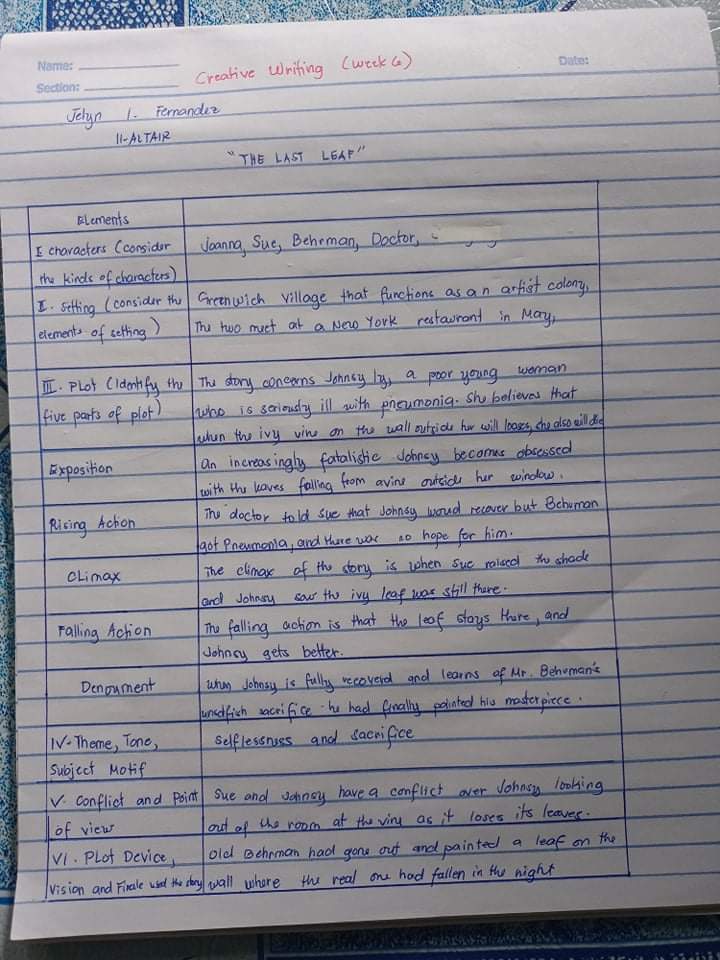 Name:
Creative Writing (week 6)
Date:
Section:
Jelyn I. Fernandez
11-ALTAIR
"THE LAST LEAF"
Elements
I characters (consider the kinds of characters)
Joanna, Sue, Behrman, Doctor,
II. Setting (consider the elements of setting)
Greenwich Village that functions as an artist colony,
The two meet at a New York restaurant in May,
III. Plot (Identify the five parts of plot)
The story concerns Johnsy by, a poor young woman
who is seriously ill with pneumonia. She believes that
when the ivy vine on the wall outside her will looses, she also will die
Exposition
an increasingly fatalistic Johnsy becomes obsessed
with the leaves falling from a vine outside her window.
Rising Action
The doctor told Sue that Johnsy woud recover but Behrman
got Pneumonia, and there was no hope for him.
Climax
The climax of the story is when Sue raised the shade
and Johnsy saw the ivy leaf was still there.
Falling Action
The falling action is that the leaf stays there, and
Johnsy gets better.
Denoument
When Johnsy is fully recoverd and learns of Mr. Behrman's
unselfish sacrifice. he had finally painted his masterpiece.
IV-Theme, Tone,
Subject Motif
Selflessness and sacrifice
V. Conflict and Point
of view
Sue and Johnsy have a conflict over Johnsy looking
out of the room at the vine as it loses its leaves.
VI. Plot Device,
Vision and Finale used the story
Old Behrman had gone out and painted a leaf on the
wall where the real one had fallen in the night